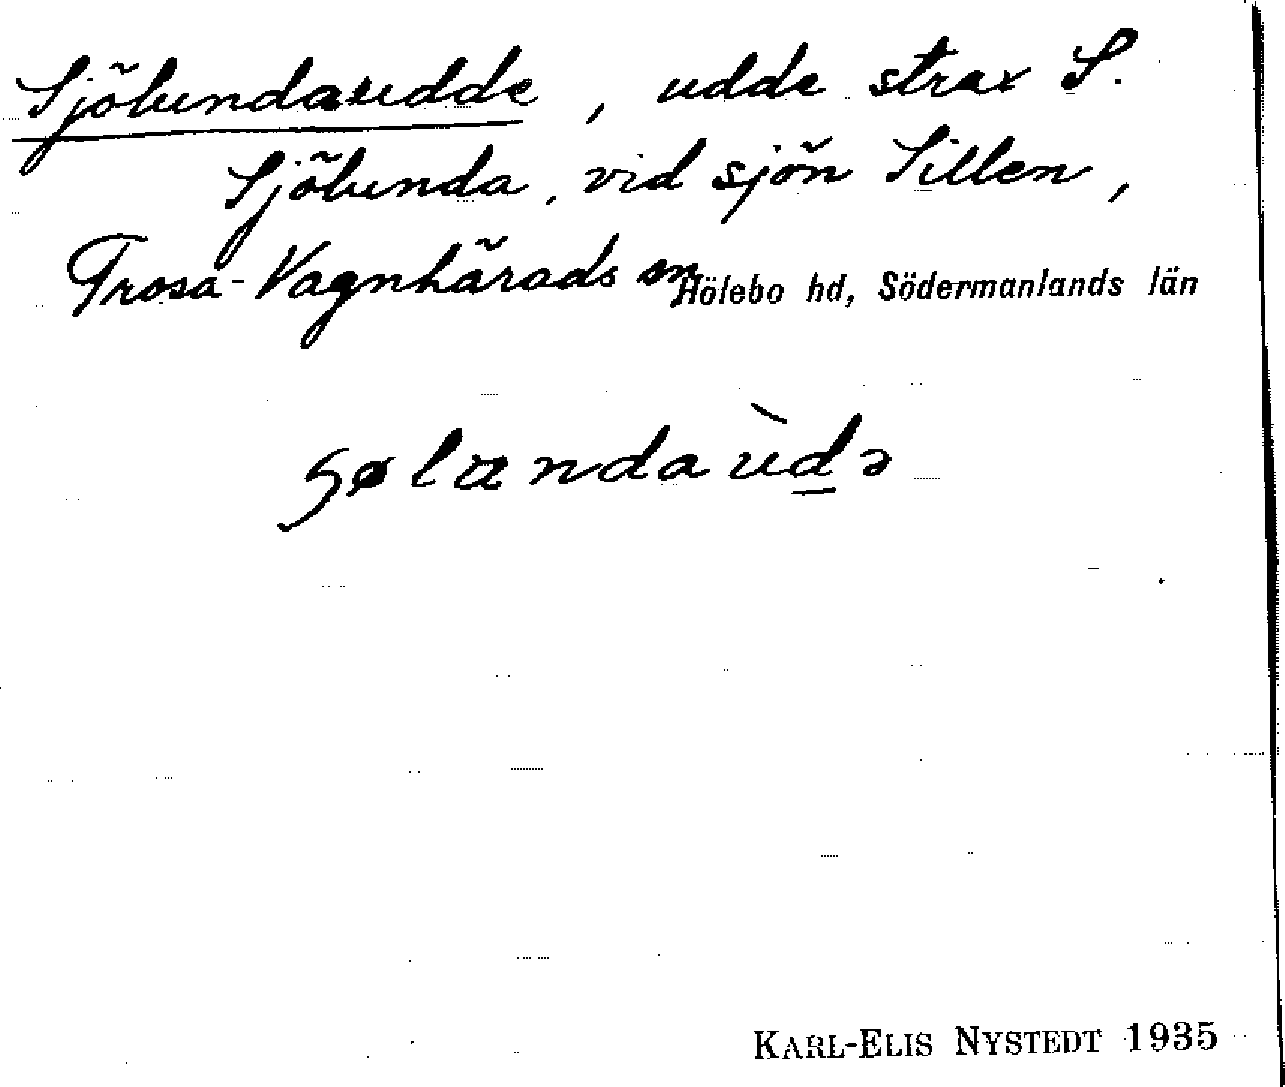 Sjölundaudde, udde strax S.
Sjölunda, vid sjön Sillen,
Trosa-Vagnhärads sn Hölebo hd, Södermanlands län
KARL-ELIS NYSTEDT 1935